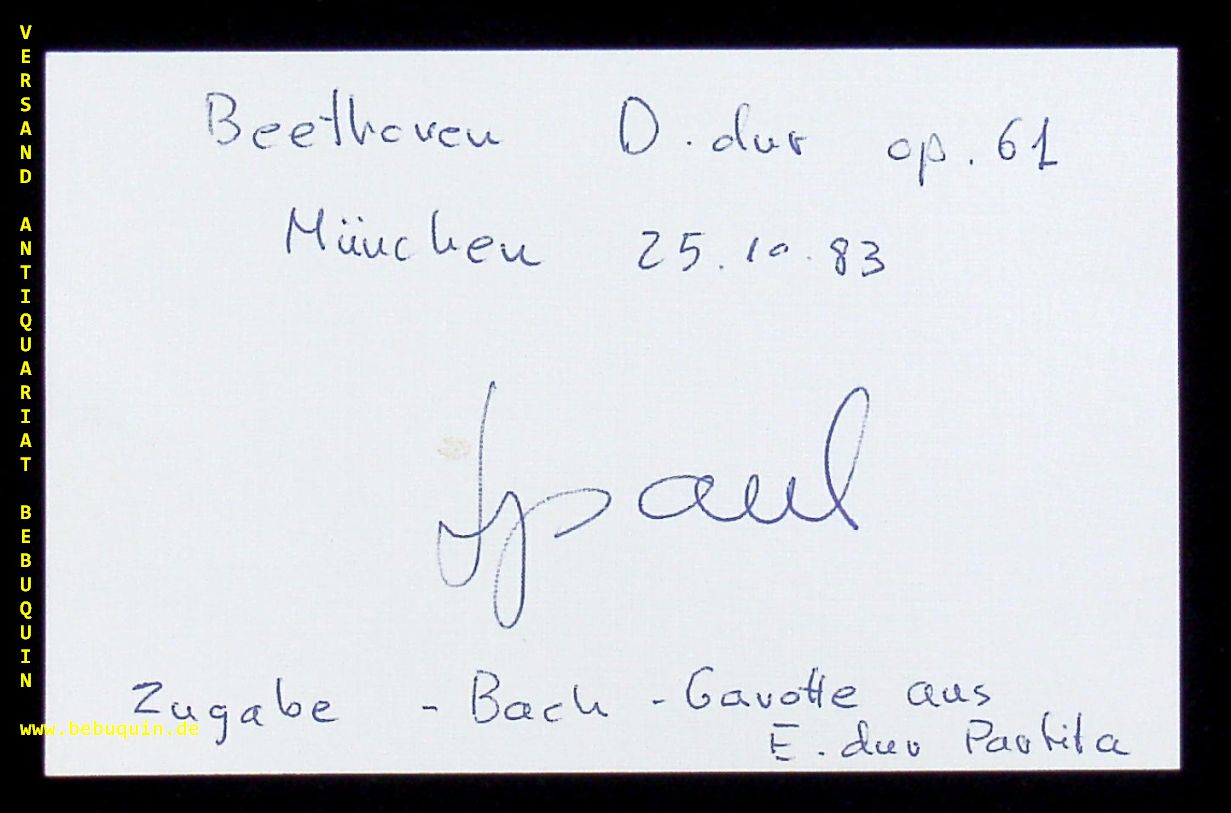 VERSAND ANTIQUARIAT BEBUQUIN
Beethoven D. dur op. 61
München 25.10.83
Zugabe - Bach - Gavotte aus
E. dur Partita
www.bebuquin.de